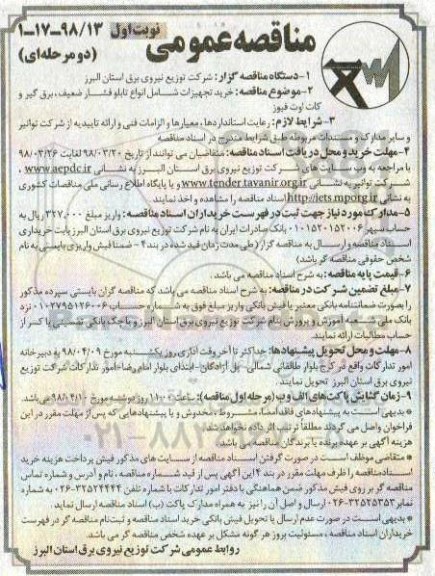 مناقصه عمومی نوبت اول ۹۸/۱۳-۱۷-۱
(دو مرحله‌ای)
۱-دستگاه مناقصه گزار: شرکت توزیع نیروی برق استان البرز
۲-موضوع مناقصه: خرید تجهیزات شامل انواع تابلو فشار ضعیف، برق گیر و
کات اوت فیوز
۳- شرایط لازم: رعایت استانداردها، معیارها و الزامات فنی و ارائه تاییدیه از شرکت توانیر
و سایر مدارک و مستندات مربوطه طبق شرایط مندرج در اسناد مناقصه
۴-مهلت خرید و محل دریافت اسناد مناقصه: متقاضیان می توانند از تاریخ ۹۸/۰۳/۲۰ لغایت ۹۸/۰۳/۲۶
با مراجعه به وب سایت های شرکت توزیع نیروی برق استان البرز به نشانی www.aepdc.ir ،
شرکت توانیر به نشانی www.tender.tavanir.org.ir و یا پایگاه اطلاع رسانی ملی مناقصات کشوری
به نشانی http://iets.mporg.ir اسناد مناقصه را مشاهده و اخذ نمایند.
۵-مدارک مورد نیاز جهت ثبت در فهرست خریداران اسناد مناقصه: واریز مبلغ ۳۲۷،۰۰۰ ریال به
حساب سپهر ۰۱۰۱۵۲۰۱۵۲۰۰۶ بانک صادرات ایران به نام شرکت توزیع نیروی برق استان البرز بابت خریداری
اسناد مناقصه و ارسال به مناقصه گزار (طی مدت زمان قید شده در بند ۴ - ضمنا فیش واریزی بایستی به نام
شخص حقوقی مناقصه گر باشد)
۶-قیمت پایه مناقصه: به شرح اسناد مناقصه می باشد.
۷-مبلغ تضمین شرکت در مناقصه: به شرح اسناد مناقصه می باشد که مناقصه گران بایستی سپرده مذکور
را بصورت ضمانتنامه بانکی معتبر یا فیش بانکی واریز مبلغ فوق به شماره حساب ۰۱۰۲۷۹۵۱۲۶۰۰۶ نزد
بانک ملی شعبه آموزش و پرورش بنام شرکت توزیع نیروی برق استان البرز و یا چک بانکی تضمینی یا کسر از
حساب مطالبات ارائه نمایند.
۸-مهلت و محل تحویل پیشنهادها: حداکثر تا آخر وقت اداری روز یکشنبه مورخ ۹۸/۰۴/۰۹ به دبیرخانه
امور تدارکات واقع در کرج بلوار طالقانی شمالی - پل آزادگان- ابتدای بلوار امام رضا-امور تدارکات شرکت توزیع
نیروی برق استان البرز تحویل نمایند.
۹-زمان گشایش پاکت های الف و ب (مرحله اول مناقصه): ساعت ۱۱:۰۰ روز دوشنبه مورخ ۹۸/۰۴/۱۰ می باشد.
* بدیهی است به پیشنهادهای فاقد امضا، مشروط، مخدوش و یا پیشنهادهایی که پس از مهلت مقرر در این
فراخوان واصل می گردند مطلقا ترتیب اثر داده نخواهد شد.
هزینه آگهی بر عهده برنده یا برندگان مناقصه می باشد.
* متقاضی موظف است در صورت گرفتن اسناد مناقصه از سایت های مذکور فیش پرداخت هزینه خرید
اسناد مناقصه را ظرف مهلت مقرر در بند ۴ این آگهی پس از قید شماره مناقصه ، نام و آدرس و شماره تماس
مناقصه گر بر روی فیش مذکور ضمن هماهنگی با دفتر امور تدارکات با شماره تلفن ۳۲۵۲۴۴۴۴-۰۲۶ به شماره
نمابر ۳۲۵۲۵۳۵۳-۰۲۶ ارسال و اصل آن را نیز به همراه مدارک پاکت (ب) اسناد مناقصه ارسال نماید.
* بدیهی است در صورت عدم ارسال یا تحویل فیش بانکی خرید اسناد مناقصه و ثبت نام مناقصه گر در فهرست
خریداران اسناد مناقصه ، مسئولیت بروز هر گونه مشکل بر عهده شخص مناقصه گر می باشد.
روابط عمومی شرکت توزیع نیروی برق استان البرز